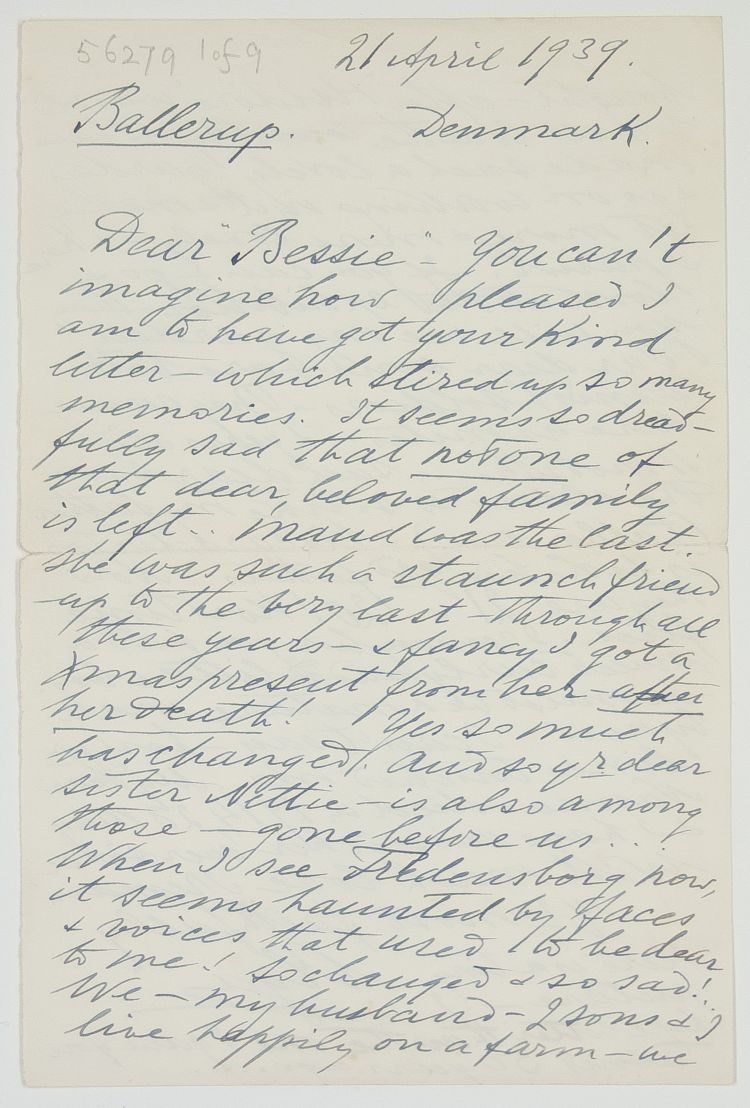 56279 1 of 9
21 April 1939.
Ballerup. Denmark.
Dear "Bessie" - You can't
imagine how pleased I
am to have got your kind
letter - which stired up so many
memories. It seems so dread-
fully sad that not one of
that dear, beloved family
is left.. Maud was the last.
She was such a staunch friend
up to the very last - through all
these years - & fancy I got a
Xmas present from her - after
her death! Yes so much
has changed. And so yr dear
sister Nettie - is also among
those - gone before us...
When I see Fredensborg now,
it seems haunted by faces
& voices that used to be dear
to me! So changed & so sad!..
We - my husband - 2 sons & I
live happily on a farm - we